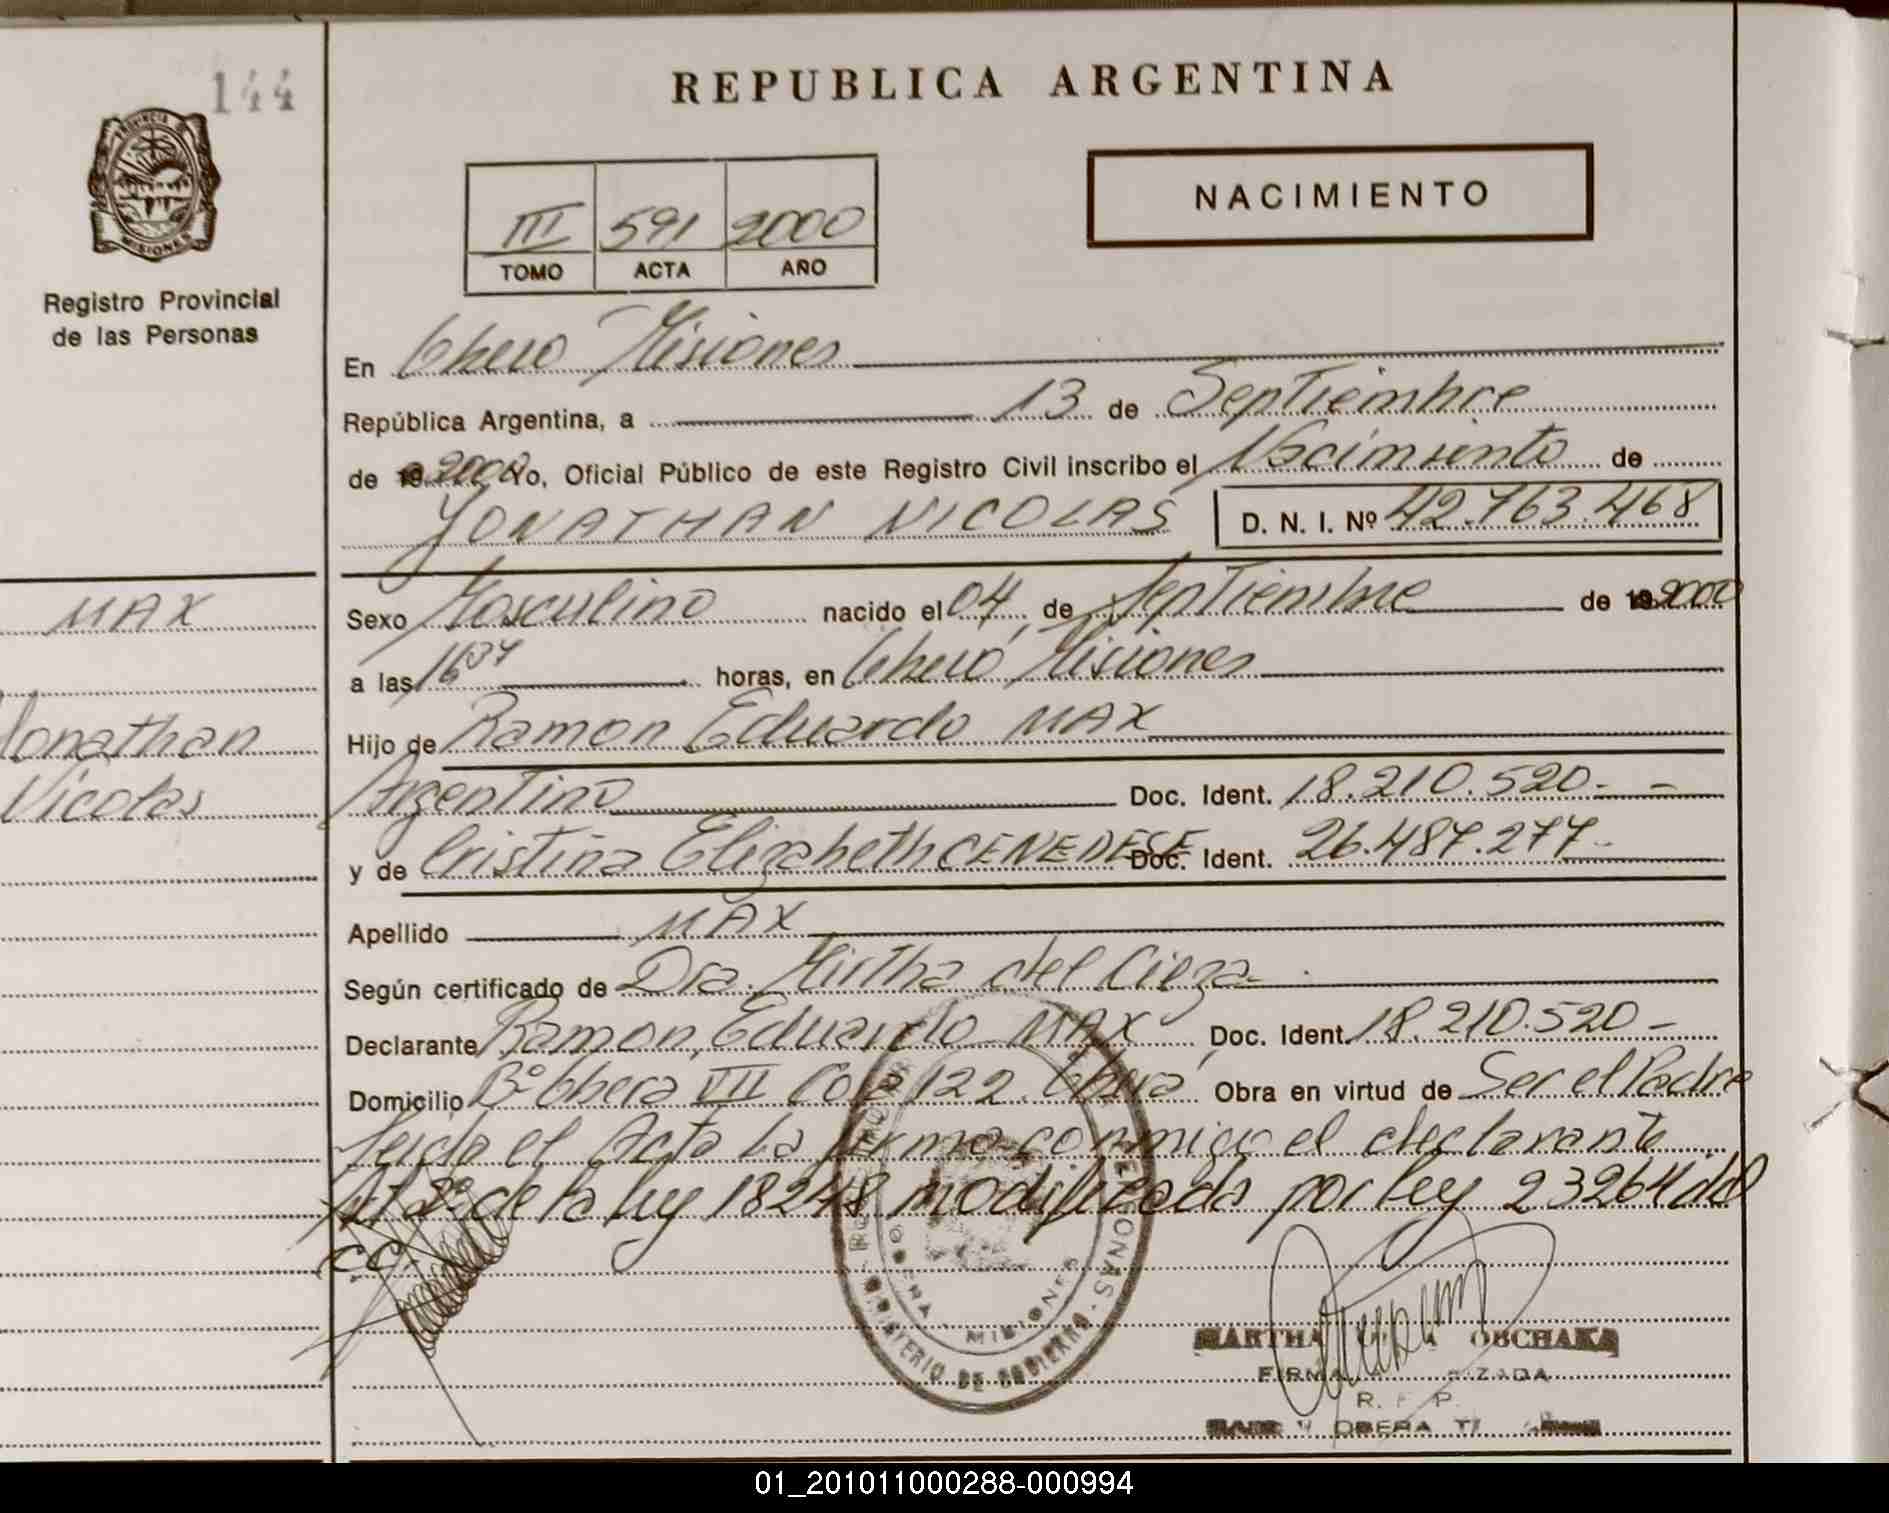 144
REPUBLICA ARGENTINA
NACIMIENTO
III 591 2000
TOMO ACTA AÑO
PROVINCIA DE
MISIONES
Registro Provincial
de las Personas
En Obera Misiones
República Argentina, a 13 de Septiembre
de 2000 Yo, Oficial Público de este Registro Civil inscribo el Nacimiento de
YONATHAN NICOLAS D. N. I. Nº 42.763.468
MAX
Yonathan
Nicolas
Sexo Masculino nacido el 04 de Septiembre de 2000
a las 16 34 horas, en Oberá Misiones
Hijo de Ramon Eduardo MAX
Argentino Doc. Ident. 18.210.520.-
y de Cristina Elizabeth CENEDESE Doc. Ident. 26.487.277.-
Apellido MAX
Según certificado de Dra. Mirtha del Cieza
Declarante Ramon Eduardo MAX Doc. Ident. 18.210.520-
Domicilio Bº Obera VII Casa 122. Oberá Obra en virtud de Ser el Padre
Leida el Acta la firma conmigo el declarante
Art 2º de la ley 18248 modificada por ley 23264 del
CC.
OBERA - MISIONES
MINISTERIO DE GOBIERNO
MARTHA OBCHAKA
R. P.
OBERA
01_201011000288-000994